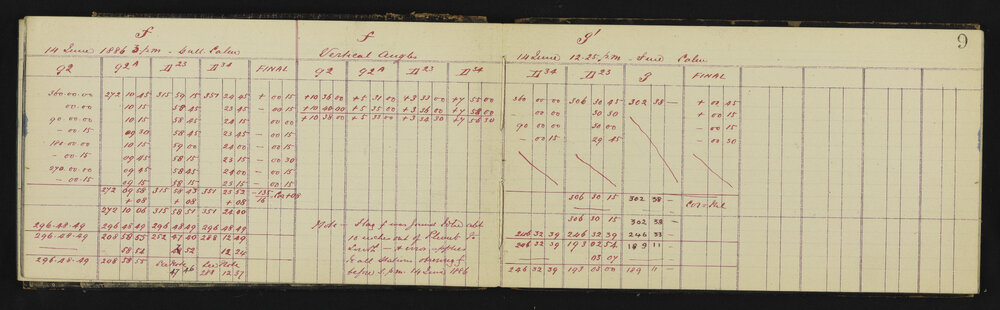 f
14 June 1886 3 pm - Dull Calm
g2 g2A II23 II34 FINAL
360.00.00 272 10 45 315 59 15 351 24 45 + 00 15
00.00 10 15 58 45 23 45 - 00 15
90.00.00 10 15 58 45 24 15 00 00
- 00 15 09 30 58 45 23 45 - 00 15
180.00.00 10 15 59 00 24 00 - 00 15
- 00.15 09 45 58 45 23 15 - 00 30
270.00.00 09 45 58 45 24 00 - 00 15
- 00.15 09 15 58 15 23 15 - 00 15
272 09 58 315 58 43 351 23 52
+ 08 + 08 + 08
272 10 06 315 58 51 351 24 00
296.48.49 296 48 49 296 48 49 296 48 49
296.48.49 208 58 55 252 47 40 288 12 49
58 54 12 24
296.48.49 208 58 55 See Note See Note
47 46 288 12 37
f
Vertical Angles
g2 g2A II23 II34
+10 36 00 +5 31 00 +3 33 00 +7 55 00
+10 40 00 +5 35 00 +3 36 00 +7 58 00
+10 38 00 +5 33 00 +3 34 30 +7 56 30
Note - Flag f was found to be abt
10 inches out of Plumb to
South -
to all Stations observing f
before 3 p.m. 14 June 1886
g'
9
14 June 12.25 pm - Fine Calm
II34 II23 g FINAL
360 00 00 306 30 45 302 38 - + 00 45
00 00 30 30 + 00 15
90 00 00 30 00 - 00 15
- 00 15 29 45 - 00 30
306 30 15 302 38 - Cor = Nil
306 30 15 302 38 -
246 32 39 246 32 39 246 33 -
246 32 39 193 02 54 189 11 -
03 07
246 32 39 193 03 00 189 11 -